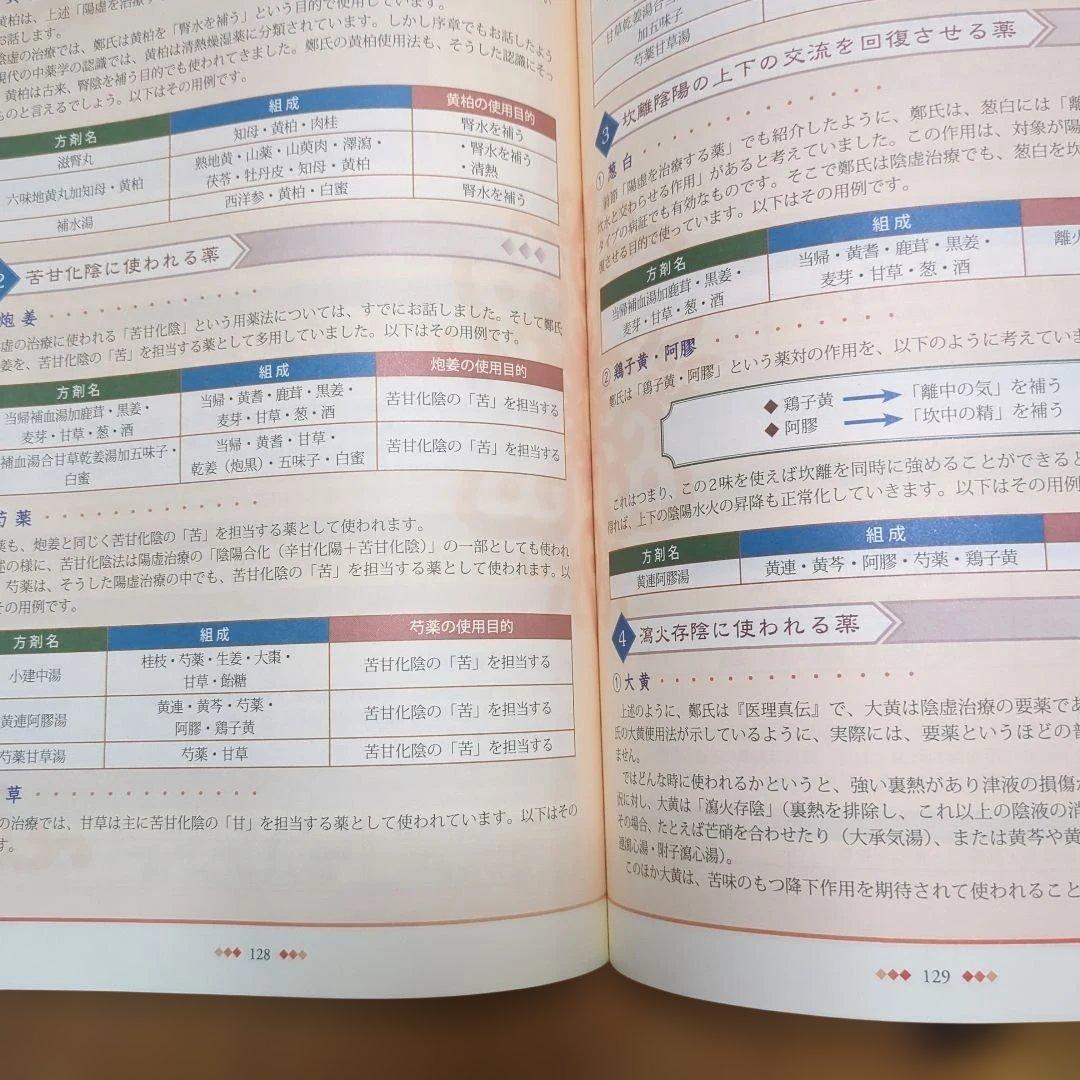 黄柏は、上述「陽虚を治療す
」という目的で使用しています。
お話します。
陰虚の治療では、鄭氏は黄柏を「腎水を補う」という目的で使用しています。しかし序章でもお話したよう
現代の中薬学の認識では、黄柏は清熱燥湿薬に分類されています。
、黄柏は古来、腎陰を補う目的でも使われてきました。鄭氏の黄柏使用法も、そうした認識にそっ
ものと言えるでしょう。以下はその用例です。
方剤名
組成
黄柏の使用目的
滋腎丸
知母・黄柏・肉桂
腎水を補う
六味地黄丸加知母・黄柏
熟地黄・山薬・山茱肉・澤瀉・
茯苓・牡丹皮・知母・黄柏
・腎水を補う
・清熱
補水湯
西洋参・黄柏・白蜜
腎水を補う
2 苦甘化陰に使われる薬
炮姜
虚の治療に使われる「苦甘化陰」という用薬法については、すでにお話しました。そして鄭氏
姜を、苦甘化陰の「苦」を担当する薬として多用していました。以下はその用例です。
方剤名
組成
炮姜の使用目的
当帰補血湯加鹿茸・黒姜・
麦芽・甘草・葱・酒
当帰・黄耆・鹿茸・黒姜・
麦芽・甘草・葱・酒
苦甘化陰の「苦」を担当する
補血湯合甘草乾姜湯加五味子・
白蜜
当帰・黄耆・甘草・
乾姜（炮黒）・五味子・白蜜
苦甘化陰の「苦」を担当する
芍薬
薬も、炮姜と同じく苦甘化陰の「苦」を担当する薬として使われます。
述の様に、苦甘化陰法は陽虚治療の「陰陽合化（辛甘化陽＋苦甘化陰）」の一部としても使われ
、芍薬は、そうした陽虚治療の中でも、苦甘化陰の「苦」を担当する薬として使われます。以
その用例です。
方剤名
組成
芍薬の使用目的
小建中湯
桂枝・芍薬・生姜・大棗・
甘草・飴糖
苦甘化陰の「苦」を担当する
黄連阿膠湯
黄連・黄芩・芍薬・
阿膠・鶏子黄
苦甘化陰の「苦」を担当する
芍薬甘草湯
芍薬・甘草
苦甘化陰の「苦」を担当する
草
の治療では、甘草は主に苦甘化陰の「甘」を担当する薬として使われています。以下はその
す。
128
甘草乾姜湯合
加五味子
芍薬甘草湯
3 坎離陰陽の上下の交流を回復させる薬
①葱白
前節「陽虚を治療する薬」でも紹介したように、鄭氏は、葱白には「離
坎水と交わらせる作用」があると考えていました。この作用は、対象が陽
タイプの病証でも有効なものです。そこで鄭氏は陰虚治療でも、葱白を坎
復させる目的で使っています。以下はその用例です。
方剤名
組成
当帰補血湯加鹿茸・黒姜・
麦芽・甘草・葱・酒
当帰・黄耆・鹿茸・黒姜・
麦芽・甘草・葱・酒
離火
②鶏子黄・阿膠
鄭氏は「鶏子黄・阿膠」という薬対の作用を、以下のように考えていま
◆ 鶏子黄 → 「離中の気」を補う
◆ 阿膠 → 「坎中の精」を補う
これはつまり、この2味を使えば坎離を同時に強めることができると
得れば、上下の陰陽水火の昇降も正常化していきます。以下はその用例
方剤名
組成
黄連阿膠湯
黄連・黄芩・阿膠・芍薬・鶏子黄
4 瀉火存陰に使われる薬
①大黄
上述のように、鄭氏は『医理真伝』で、大黄は陰虚治療の要薬であ
氏の大黄使用法が示しているように、実際には、要薬というほどの普
ません。
ではどんな時に使われるかというと、強い裏熱があり津液の損傷が
況に対し、大黄は「瀉火存陰」（裏熱を排除し、これ以上の陰液の消
その場合、たとえば芒硝を合わせたり（大承気湯）、または黄芩や黄
連瀉心湯・附子瀉心湯）。
このほか大黄は、苦味のもつ降下作用を期待されて使われること
129